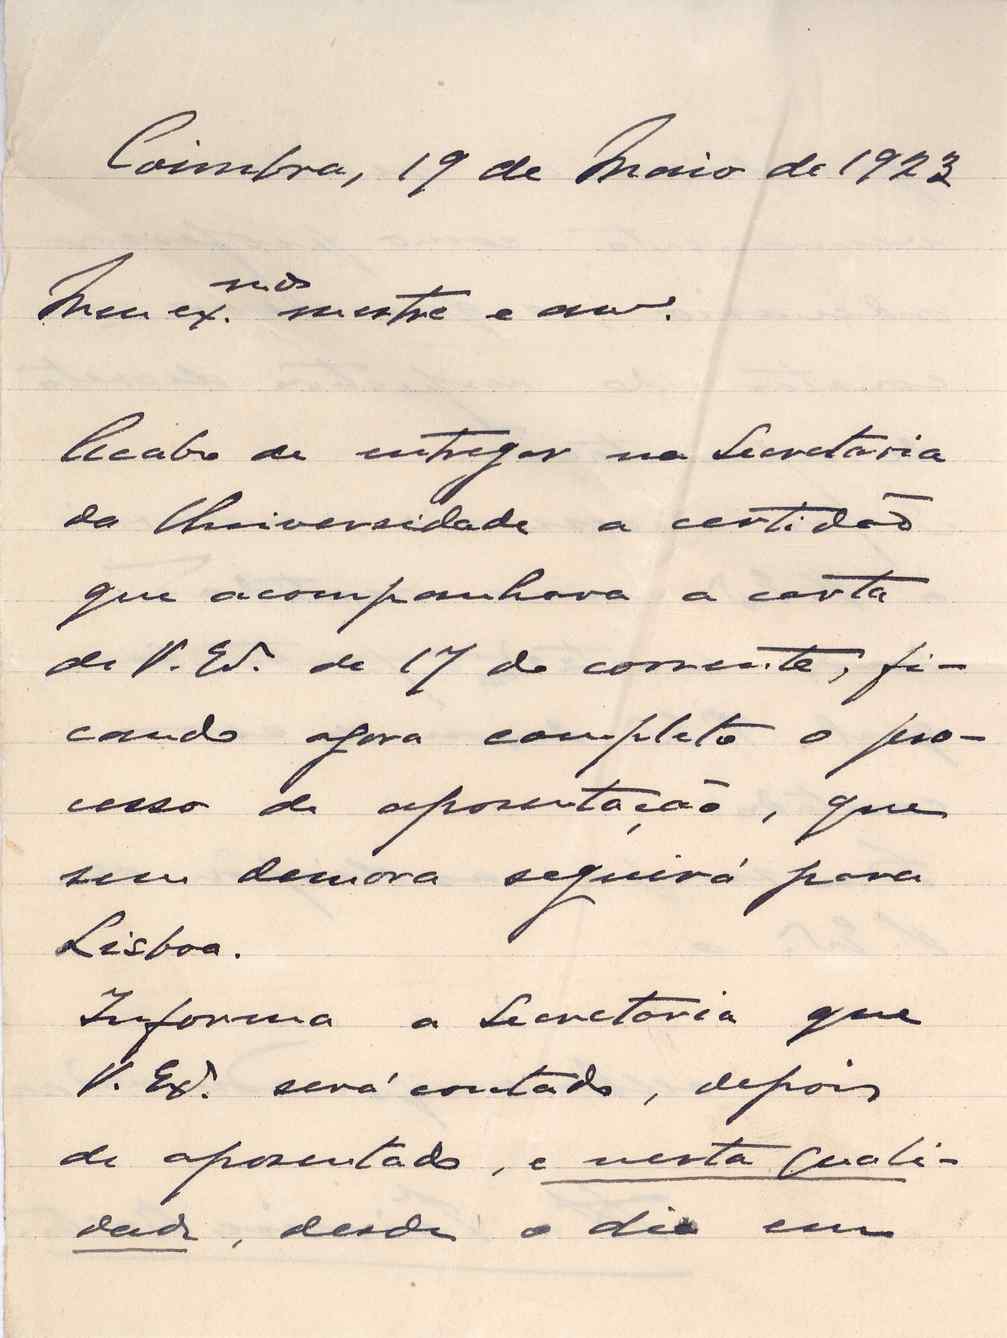 Coimbra, 19 de Maio de 1923
Meu ex.mo mestre e am.o
Acabo de entregar na Secretaria
da Universidade a certidão
que acompanhava a carta
de V. Ex.ª de 17 do corrente, fi-
cando agora completo o pro-
cesso de aposentação, que
sem demora seguirá para
Lisboa.
Informa a Secretaria que
V. Ex.ª será contado, depois
de aposentado, e nesta quali-
dade, desde o dia em